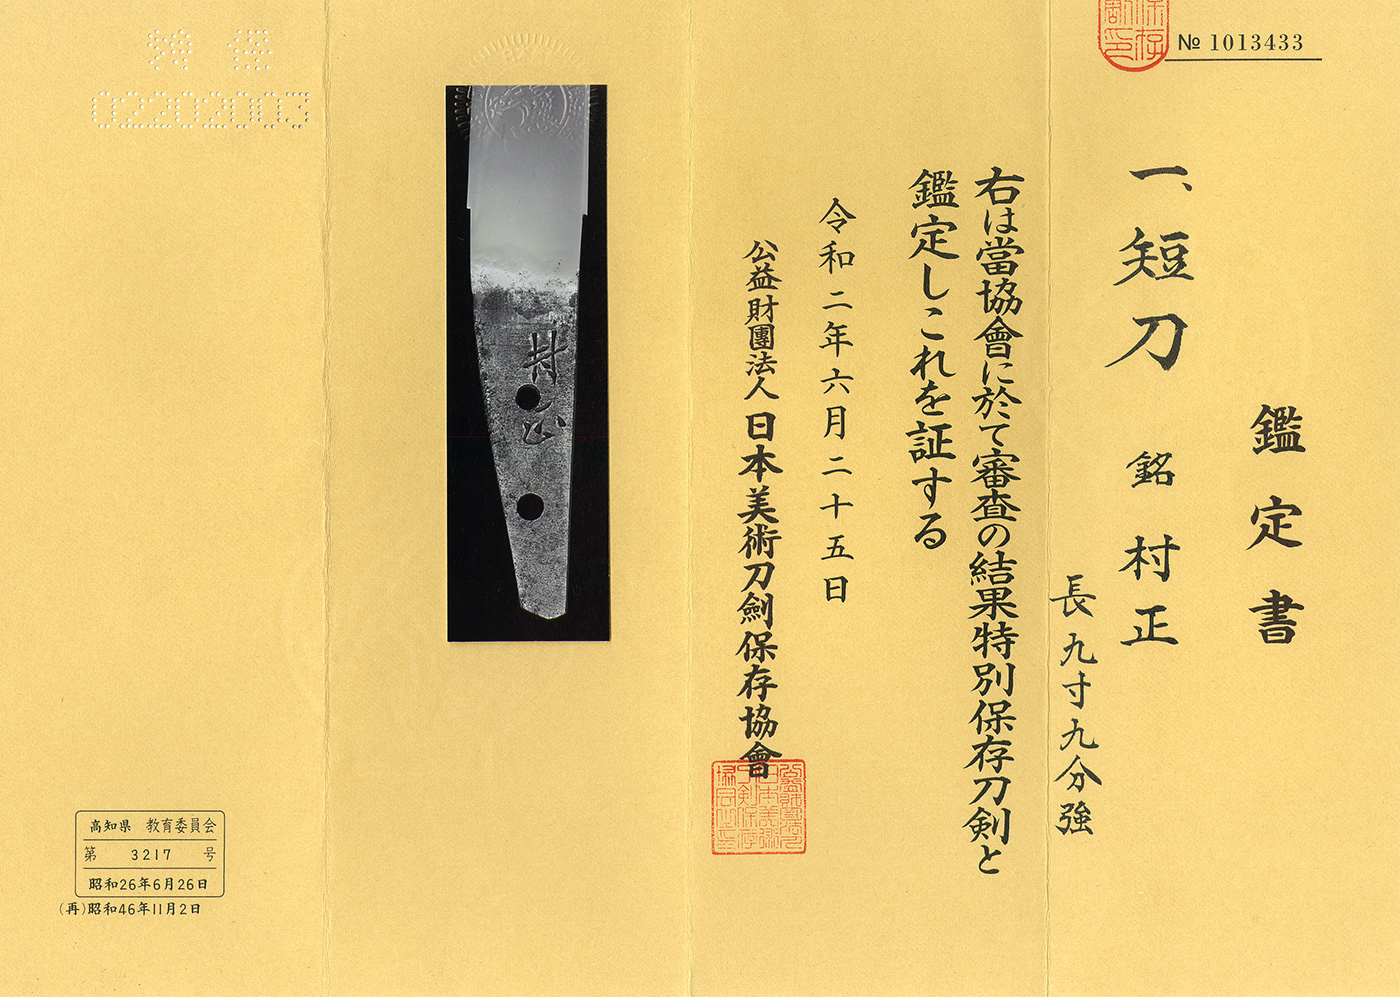 № 1013433
鑑定書
一、短刀 銘 村正
長九寸九分強
右は當協會に於て審査の結果特別保存刀剣と
鑑定しこれを証する
令和二年六月二十五日
公益財團法人日本美術刀劍保存協會
村正
特保
02202003
高知県 教育委員会
第 3217 号
昭和26年6月26日
(再)昭和46年11月2日